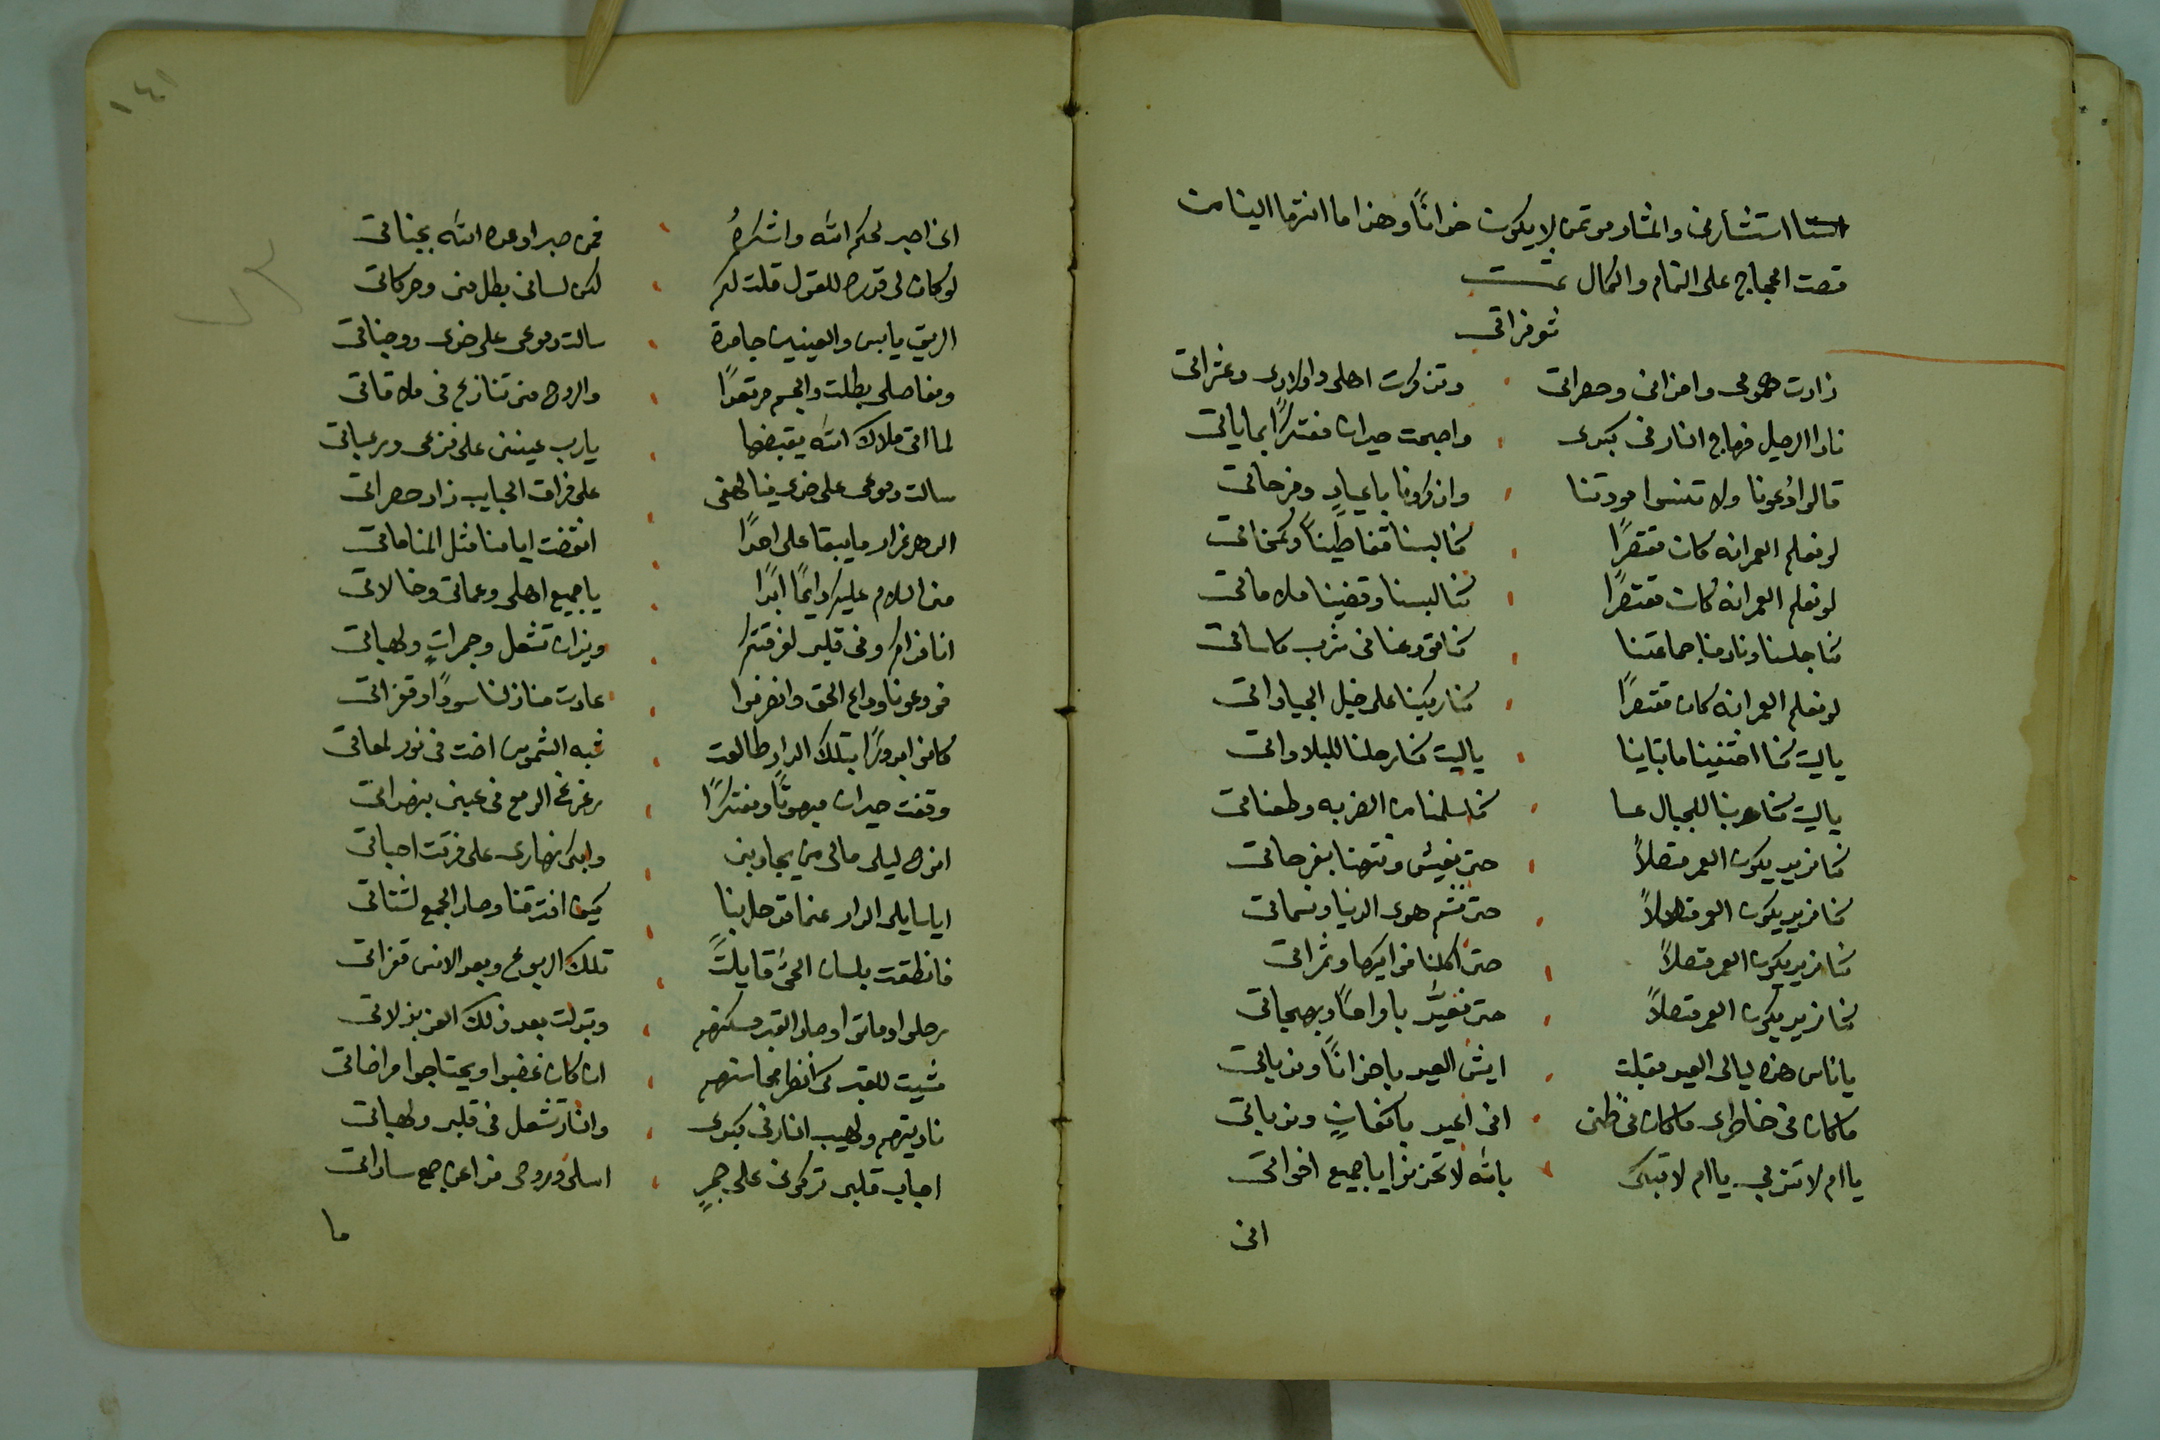 استشارنى والمشاور موتمن لا يكون خوانًا وهذا ما انتها الينا من
قصت الحجاج على التمام والكمال تمت
زادت همومى واحزانى وحصراتى وتذكرت اهلى واولادى وعثراتى
نادا الرحيل فهاج النار فى كبدى واصبحت حيران مفتكرًا بماياتى
قالوا ادعونا ولا تنسوا مودتنا واذكرونا باعيادٍ وفرحاتى
لو نعلم العمر انه كان مقتصرًا كنا لبسنا قفاطينًا وكمخاتى
لو نعلم العمر انه كان مقتصرًا كنا لبسنا وقضينا ملاماتى
كنا جلسنا ونادمنا جماعتنا كنا قد عنا فى شرب كاساتى
لو نعلم العمر انه كان مقتصرًا كنا ركبنا على خيل الجياداتى
ياليت كنا اختفينا ما تباينا ياليت كنا رحلنا للبلاداتى
ياليت كنا هربنا للجبال عسا كنا سلمنا من الضربه وطعناتى
كنا نريد يكون العمر متصلًا حتى نعيش ونتهنا بفرحاتى
كنا نريد يكون العمر متصلًا حتى نشم هوى الدنيا ونسماتى
كنا نريد يكون العمر متصلًا حتى اكلنا فواكها وثمراتى
كنا نريد يكون العمر متصلًا حتى نعيد بافراحًا وبهجاتى
ياناس هذه ليالى العيد مقبلت ايش العيد باحزانًا وندباتى
ما كان فى خاطرى ما كان فى ظنى انى اعيد باكفانٍ وندباتى
ياام لا تندبى ياام لا تبكى بالله لا تحزنوا ياجميع اخواتى
انى
انى اصبر لحكم الله واشكره فمن صبر اوعده الله بجناتى
لو كان لى قدره للقول قلت لكم لكن لسانى بطل منى وحركاتى
الريق يابس والعينين جامدة سالت دموعى على خدى ووجناتى
ومفاصلى بطلت والجسم مرتعدًا والروح منى تنازع فى ملاقاتى
لما اتى ملاك الله يقبضها يارب عيننى على فزعى ورعباتى
سالت دموعى على خدى فيا لهفى على فراق الحبايب زاد حصراتى
الدهر غدار ما يبقا على احدًا انقضت ايامنا مثل المناماتى
منى السلام عليكم دايمًا ابدًا ياجميع اهلى وعماتى وخالاتى
انا فداكم وفى قلبى لفرقتكم نيران تشعل وجمراتٍ ولهباتى
فودعونا وداع الحق وانصرفوا عادت منازلنا سودًا وقفراتى
كانوا بدورًا بتلك الدار طالعت شبه الشموس اضت فى نور لمعاتى
وقفت حيران مبهوتًا ومفتكرًا رغرغ الدمع فى عينى بنهداتى
انوح ليلى مالى من يجاوبنى وابكى نهارى على فرقت احباتى
ايا سايلى الدار عنما قد حل بنا كيف افترقنا وصار الجمع لشتاتى
فانطقت بلسان الحى قايلتً تلك الربوع وبعد الانس قفراتى
رحلوا وماتوا وصار القبر مسكنهم وتبدلت بعد ذلك العز بذلاتى
مشيت للقبر كى انظر محاسنهم ان كان غضبوا ويحتاجوا مراضاتى
ناديتهم ولهيب النار فى كبدى والنار تشعل فى قلبى ولهباتى
احباب قلبى تركونى على جمرٍ اسلى وروحى فدا عن جمع ساداتى
ما